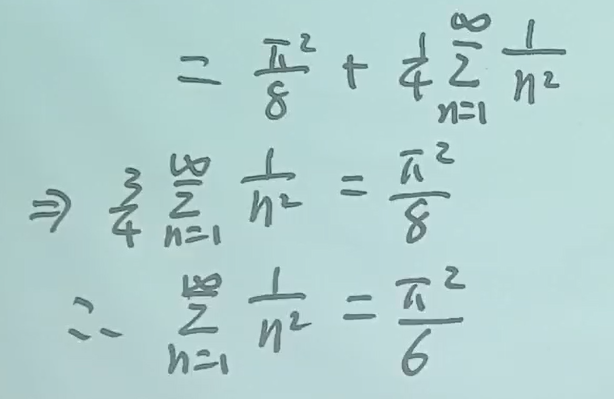 = π²/8 + 1/4 ∑_{n=1}^{∞} 1/n²
⇒ 3/4 ∑_{n=1}^{∞} 1/n² = π²/8
∴ ∑_{n=1}^{∞} 1/n² = π²/6